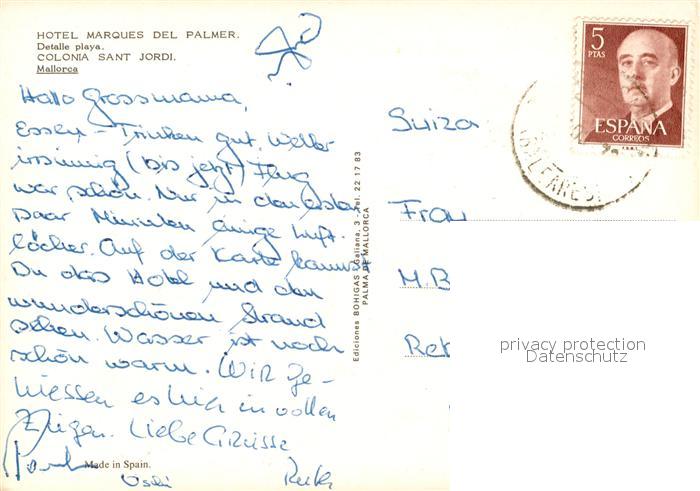 HOTEL MARQUES DEL PALMER.
Detalle playa.
COLONIA SANT JORDI.
Mallorca
Hallo Grossmama,
Essen - Trinken gut. Wetter
irrsinnig (bis jetzt) Flug
war schön. Nur in den ersten
paar Minuten einige Luft-
löcher. Auf der Karte kannst
Du das Hotel und den
wunderschönen Strand
sehen. Wasser ist noch
schön warm. Wir ge-
niessen es hier in vollen
Zügen. Liebe Grüsse
Uschi
Made in Spain.
Ediciones BOHIGAS 3 - Tel. 22 17 83
PALMA DE MALLORCA
5
PTAS
ESPAÑA
CORREOS
Suiza
Frau
M.B
privacy protection
Datenschutz